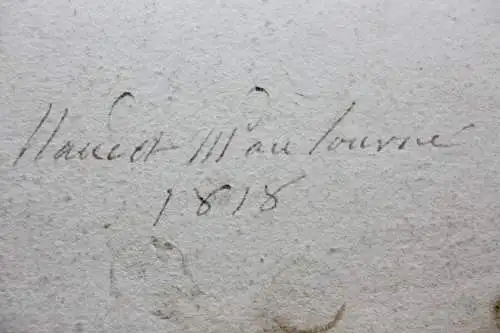 Naudet Md au louvre
1818